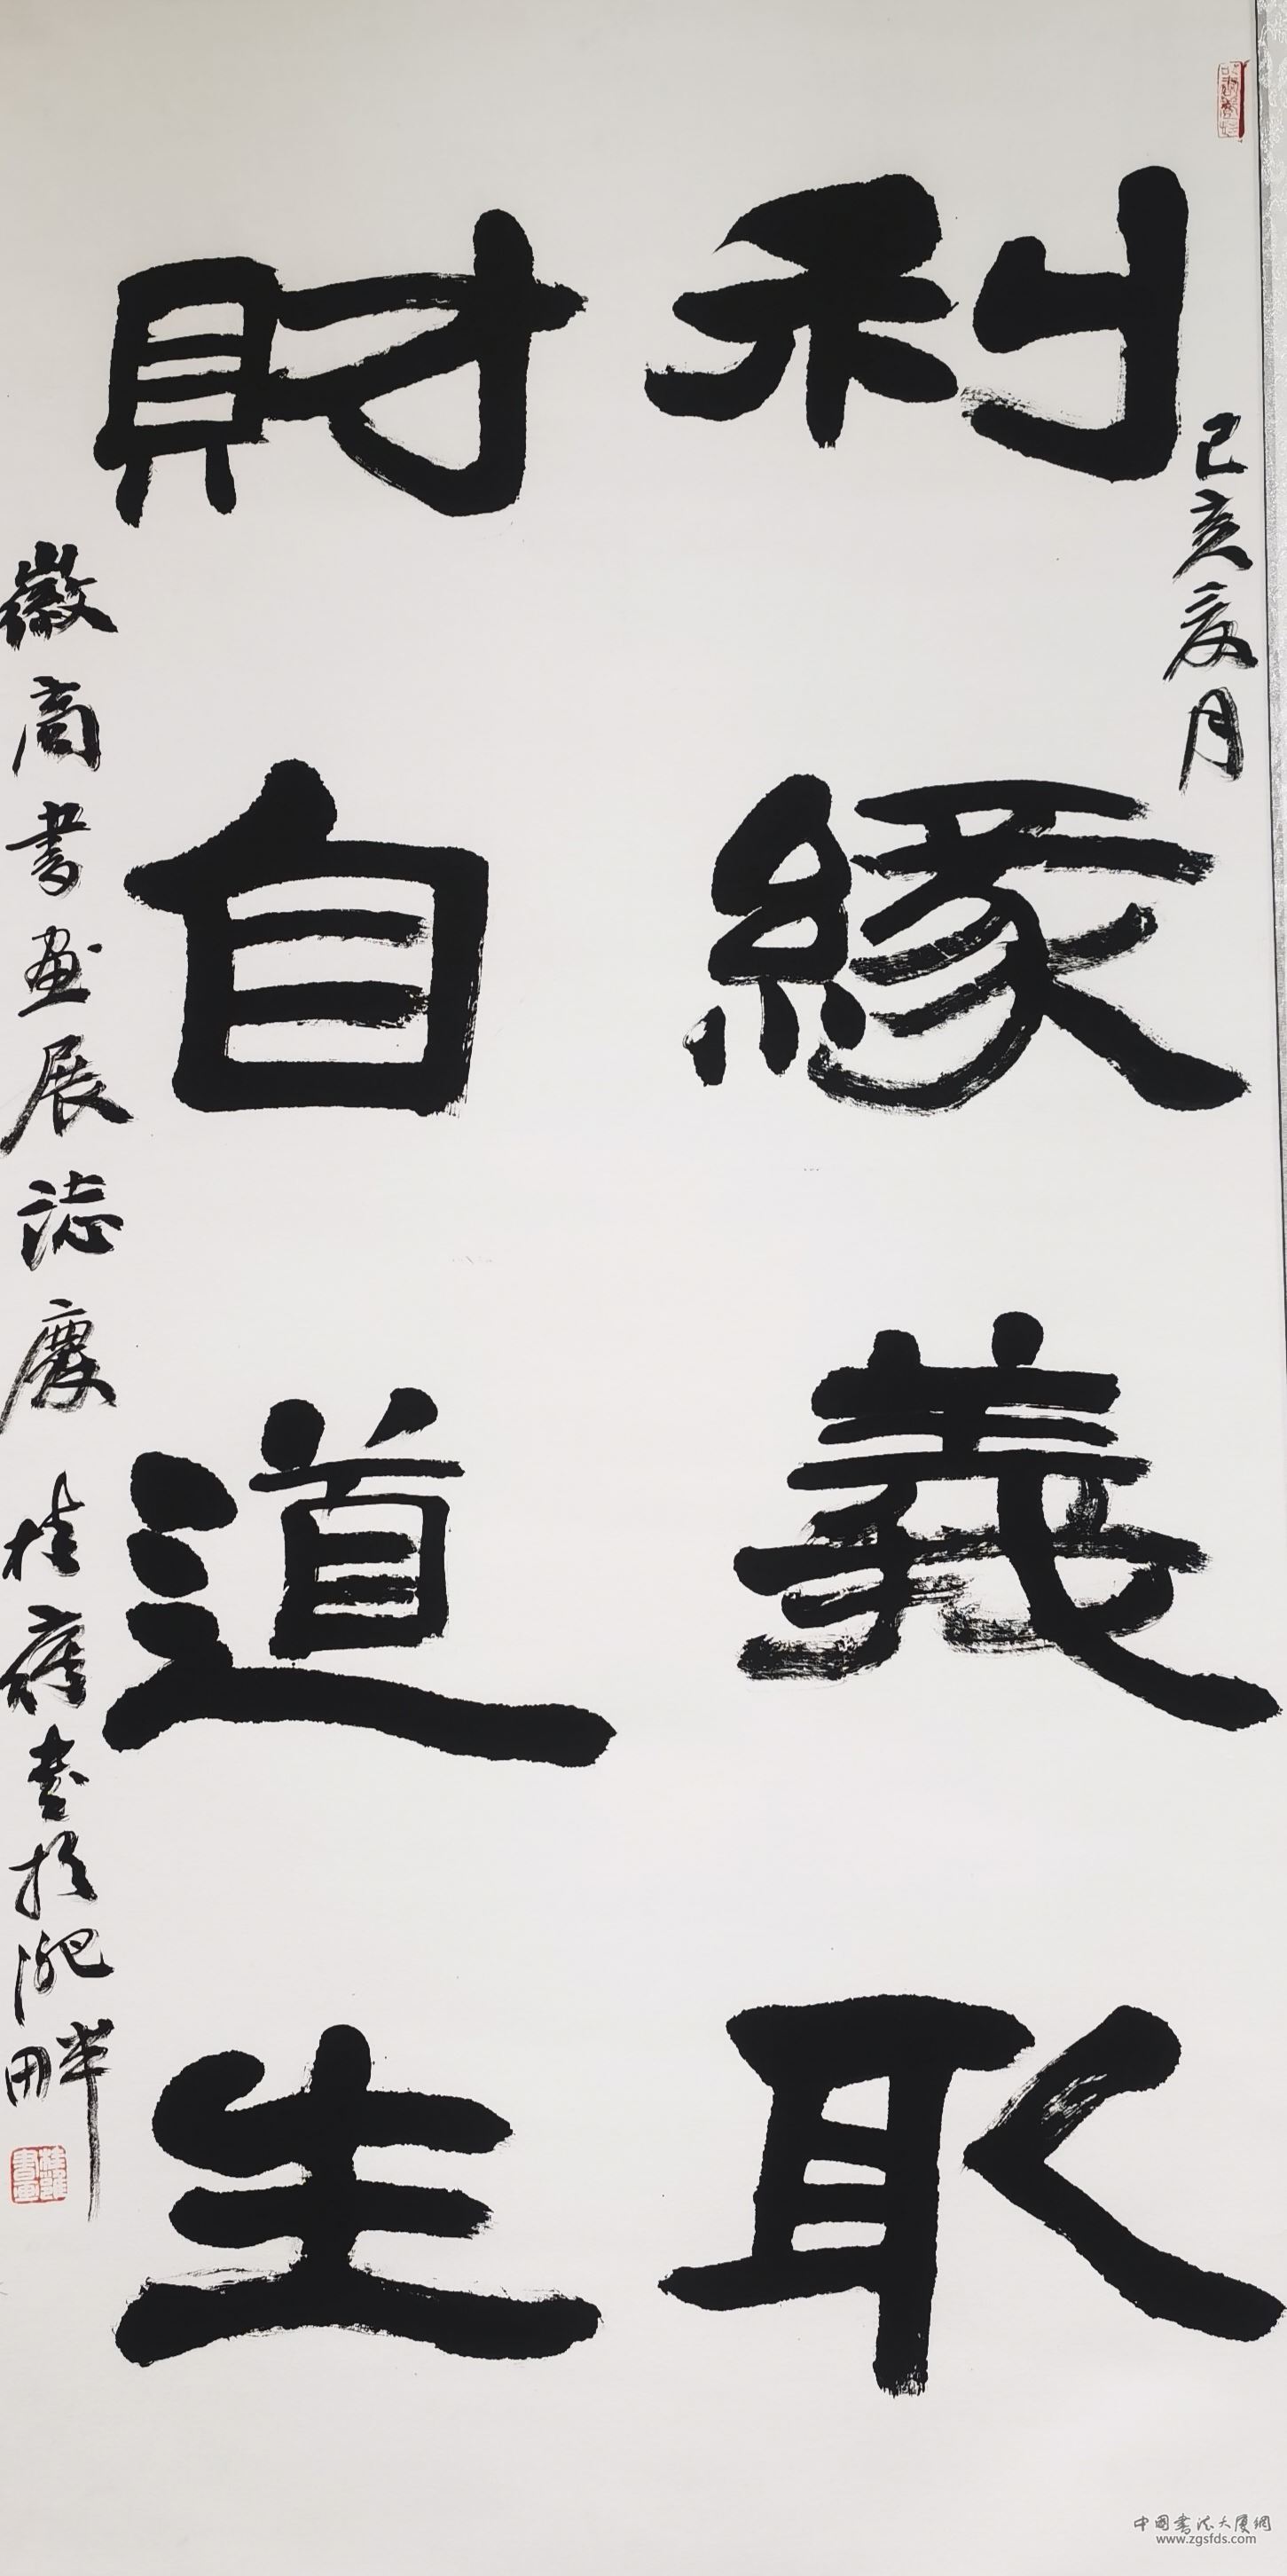 己亥夏月
利緣義取
財自道生
徽商書畫展誌慶 桂雍書於淝畔
中国书法大厦網
www.zgsfds.com